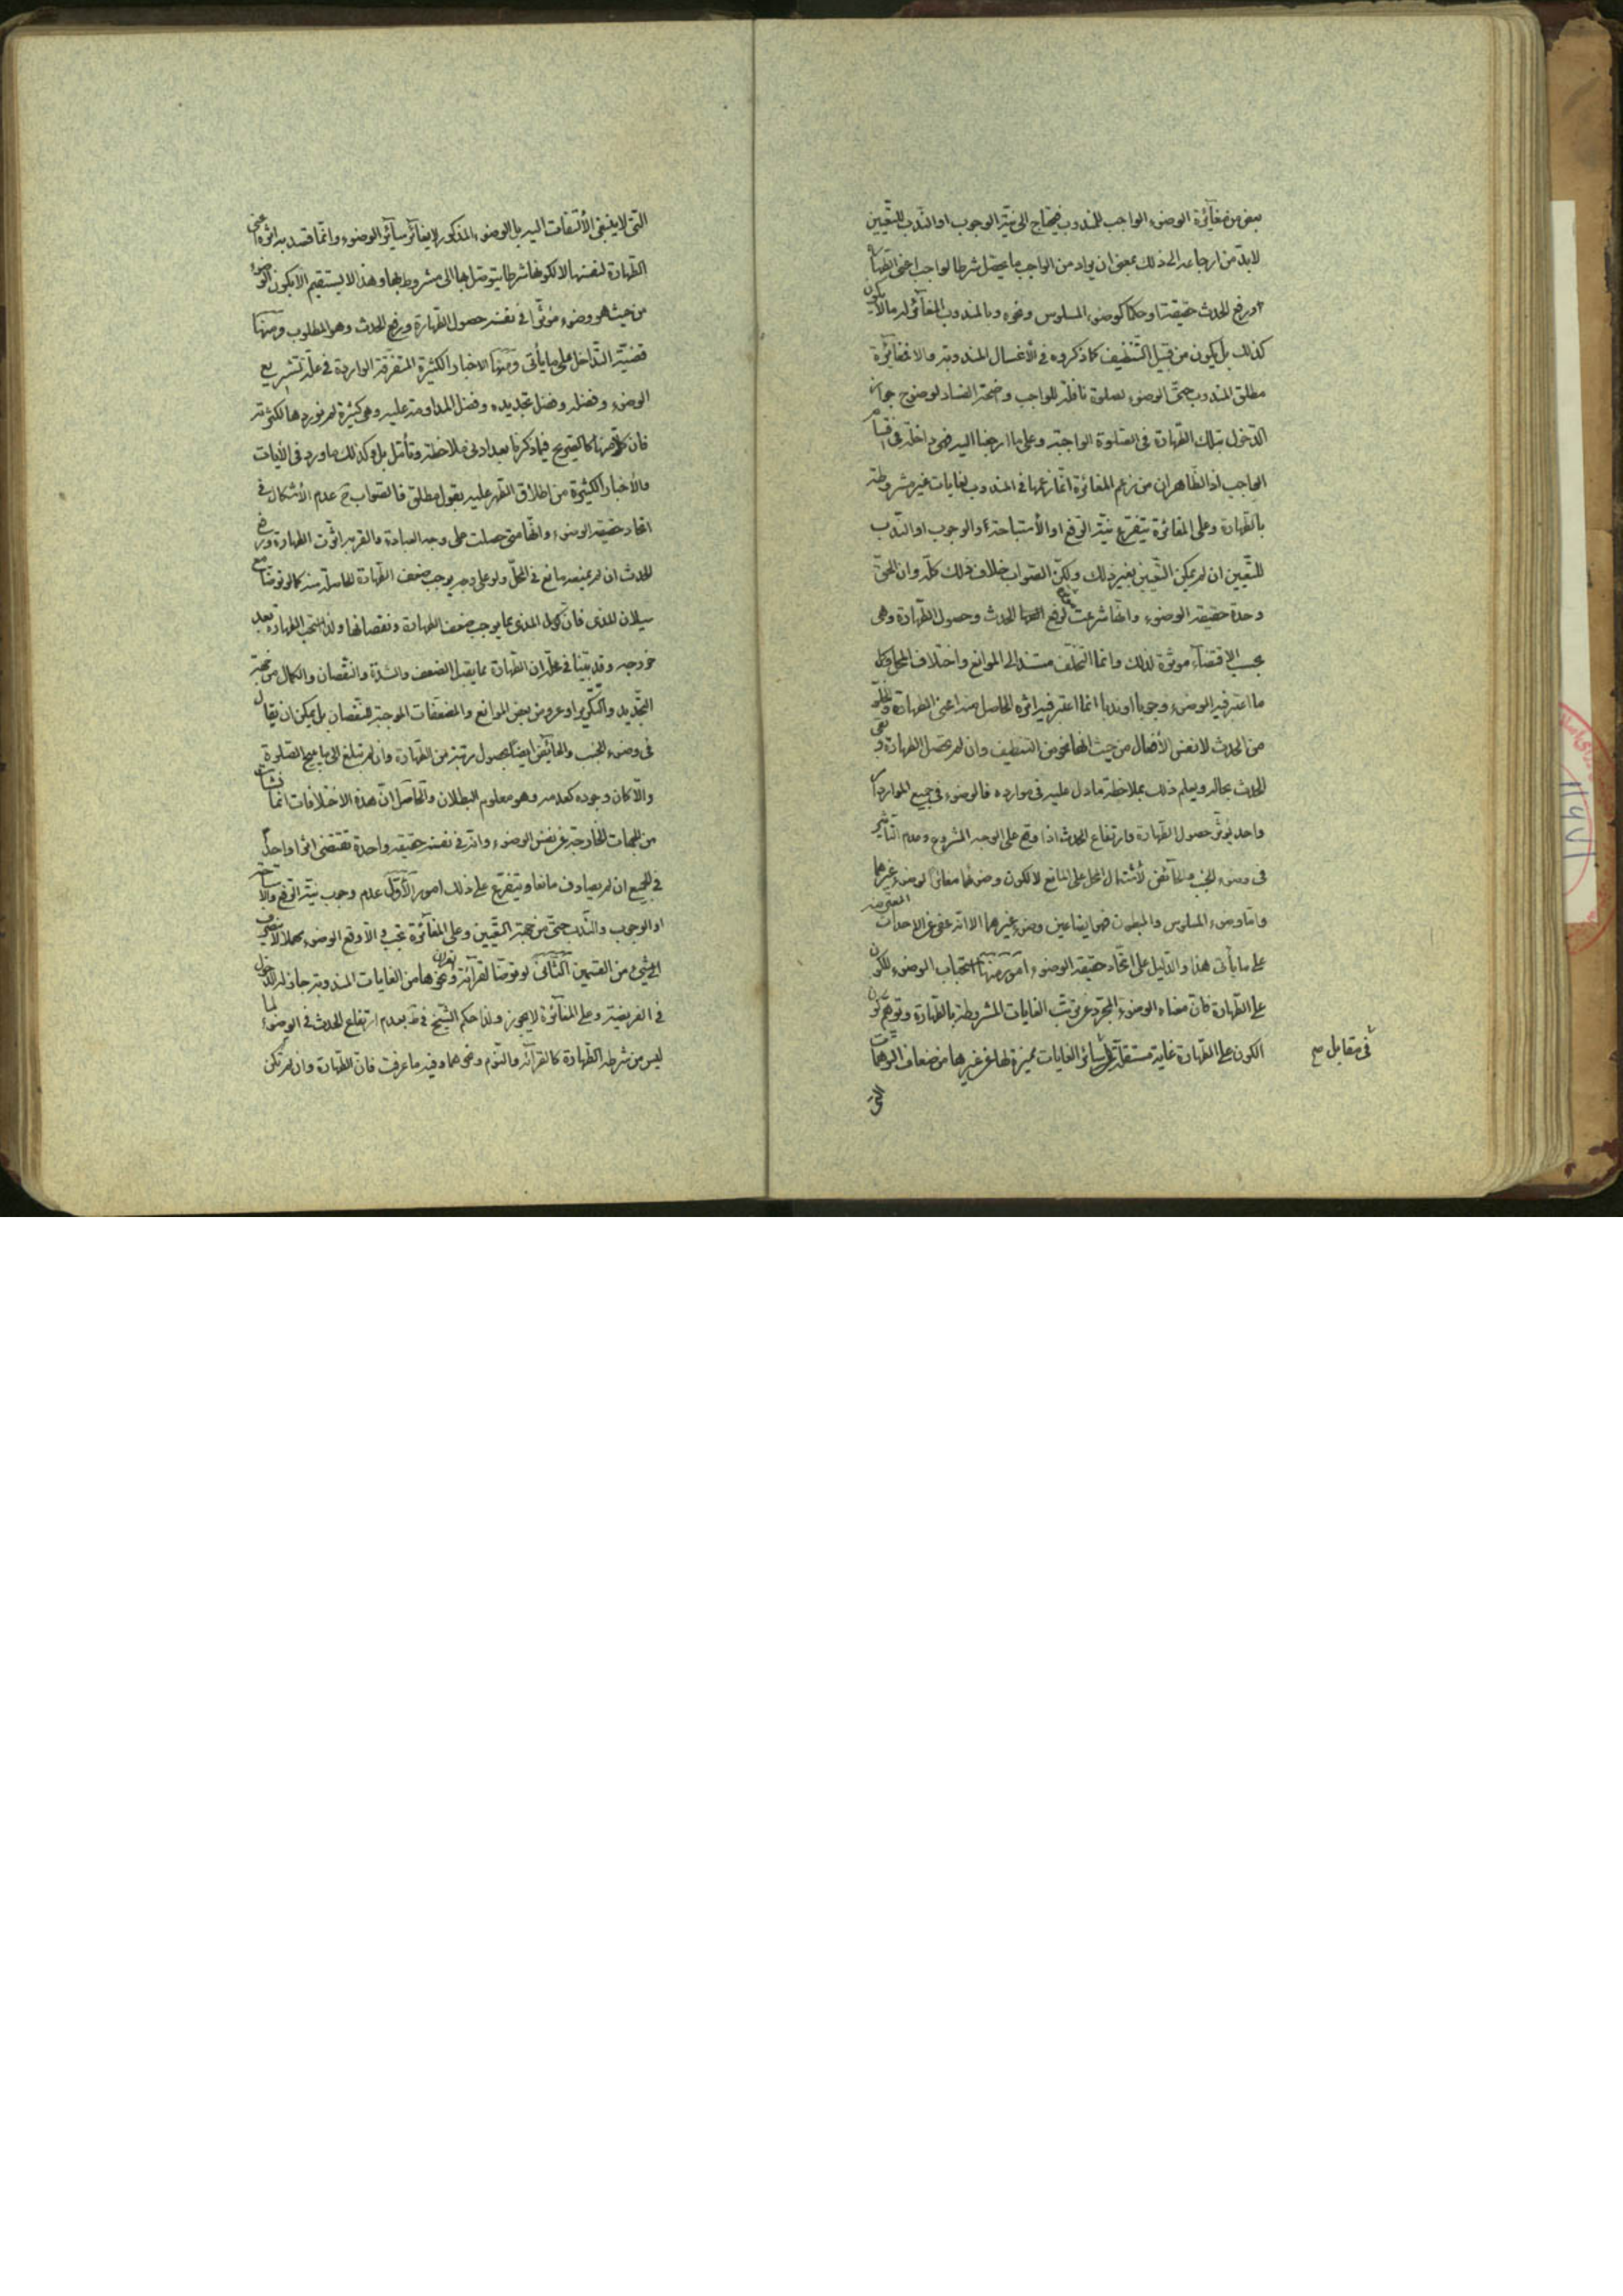 بعض من مغآئرة الوضوء الواجب للمندوب فيحتاج الى نيّة الوجوب او النّدب للتّعيين
لابدّ من ارجاعه الى ذلك بمعنى ان يراد من الواجب ما يحصّل شرطا لواجب اعنى الطّهارة
او رفع الحدث حقيقة او حكما كوضوء المسلوس ونحوه وبالمندوب المغآئر له ما لا يكون
كذلك بل يكون من قبيل التّنظيف كما ذكروه فى الأغسال المندوبة والا فمغآئرة
مطلق المندوب حتّى الوضوء لصلوة نافلة للواجب واضحة الفساد لوضوح جواز
الدّخول بتلك الطّهارة فى الصّلوة الواجبة وعلى ما ارجعنا اليه فهى داخلة فى اقسام
الواجب اذ الظّاهر ان من زعم المغائرة انّما زعمها فى المندوب لغايات غير مشروطة
بالطّهارة وعلى المغائرة يتفرّع نيّة الرّفع او الأستباحة او الوجوب او النّدب
للتّعيين ان لم يمكن التّعيين بغير ذلك ولكنّ الصّواب خلاف ذلك كلّه وان الحقّ
وحدة حقيقة الوضوء وانّها شرعت لرفع الحدث وحصول الطّهارة وهى
بحسب الاقتضآء موثّرة لذلك وانّما التخلّف مستند الى الموانع واختلاف المحل وكل
ما اعتبر فيه الوضوء وجوبا او ندبا انّما اعتبر فيه اثره الحاصل منه اعنى الطهارة والخلوّ
من الحدث لا نفس الأفعال من حيث انّها نحو من التنظيف وان لم تحصل الطهارة وبقى
الحدث بحاله ويعلم ذلك بملاحظة ما دل عليه فى موارده فالوضوء فى جميع الموارد
واحد يؤثّر حصول الطّهارة وارتفاع الحدث اذا وقع على الوجه المشروع وعدم التأثير
فى وضوء الجنب والحآئض لأشتمال المحل على المانع لا لكون وضوئهما مغائرا لوضوء غيرهما
وامّا وضوء المسلوس والمبطون فهو ايضا عين وضوء غيرهما الا انّه عفى عن الاحداث
على ما يأتى هذا والدّليل على اتّحاد حقيقة الوضوء امور منها استحباب الوضوء للكون
على الطّهارة فانّ معناه الوضوء المجرّد عن ترتّب الغايات المشروطة بالطّهارة وتوهّم كون
الكون على الطّهارة غاية مستقلّة سائر الغايات مميزة لها عن غيرها من ضعاف التّوهّمات
فى مقابل صح
التى
التّى لا ينبغى الألتفات اليه بل الوضوء المذكور لا يغآئر سآئر الوضوء وانّما قصد به اثره اعنى
الطّهارة لنفسها لا لكونها شرطا يتوصّل بها الى مشروط بها وهذا لا يستقيم الا بكون الوضوء
من حيث هو وضوء مؤثّرا فى نفسه حصول الطّهارة ورفع الحدث وهو المطلوب ومنها
قضيّة التّداخل على ما يأتى ومنها الاخبار الكثيرة المتفرّقة الواردة فى علّة تشريع
الوضوء وفضله وفضل تجديده وفضل المداومة عليه وهى كثيرة لم نوردها لكثرتها
فان كلّا منها كالصّريح فيما ذكرنا بعد ادنى ملاحظة وتأمّل بل وكذلك ما ورد فى الأيات
والأخبار الكثيرة من اطلاق الطّهر عليه بقول مطلق فالصّواب ح عدم الأشكال فى
اتّحاد حقيقة الوضوء وانّها متى حصلت على وجه العبادة والقربة اثّرت الطهارة ورفع
الحدث ان لم يمنعه مانع فى المحلّ ولو على وجه يوجب ضعف الطّهارة الحاصلة منه كما لو توضّأ مع
سيلان المذى فانّ المذى مما يوجب ضعف الطهارة ونقصانها ولذا يستحب الطهارة بعد
خروجه وقد بيّنا فى محلّه ان الطّهارة مما يقبل الضعف والشدّة والنّقصان والكمال من جهة
التّجديد والتّكرير او عروض بعض الموانع والمضعّفات الموجبة للنّقصان بل يمكن ان يقال
فى وضوء الجنب والحآئض ايضا بحصول رتبة من الطّهارة وان لم تبلغ الى ما يبيح الصّلوة
والّا كان وجوده كعدمه وهو معلوم البطلان والحاصل انّ هذه الاختلافات انّما نشأت
من الجهات الخارجة عن نفس الوضوء وانّه فى نفسه حقيقة واحدة تقتضى اثرا واحدا
فى الجميع ان لم يصادف مانعا ويتفرّع على ذلك امور الأوّل عدم وجوب نيّة الرّفع والاستباحة
او الوجوب والنّدب حتّى من جهة التّعيين وعلى المغآئرة تجب والّا وقع الوضوء مهملا
لشىء من القسمين الثّانى لو توضّأ لقرآئة القران ونحوها من الغايات المندوبة جاز له الدّخول
فى الفريضة وعلى المغآئرة لا يجوز ولذا حكم الشّيخ فى ط بعدم ارتفاع الحدث فى الوضوء لما
ليس من شرطه الطّهارة كالقرآئة والنّوم ونحوهما وفيه ما عرفت فانّ الطّهارة وان لم تكن